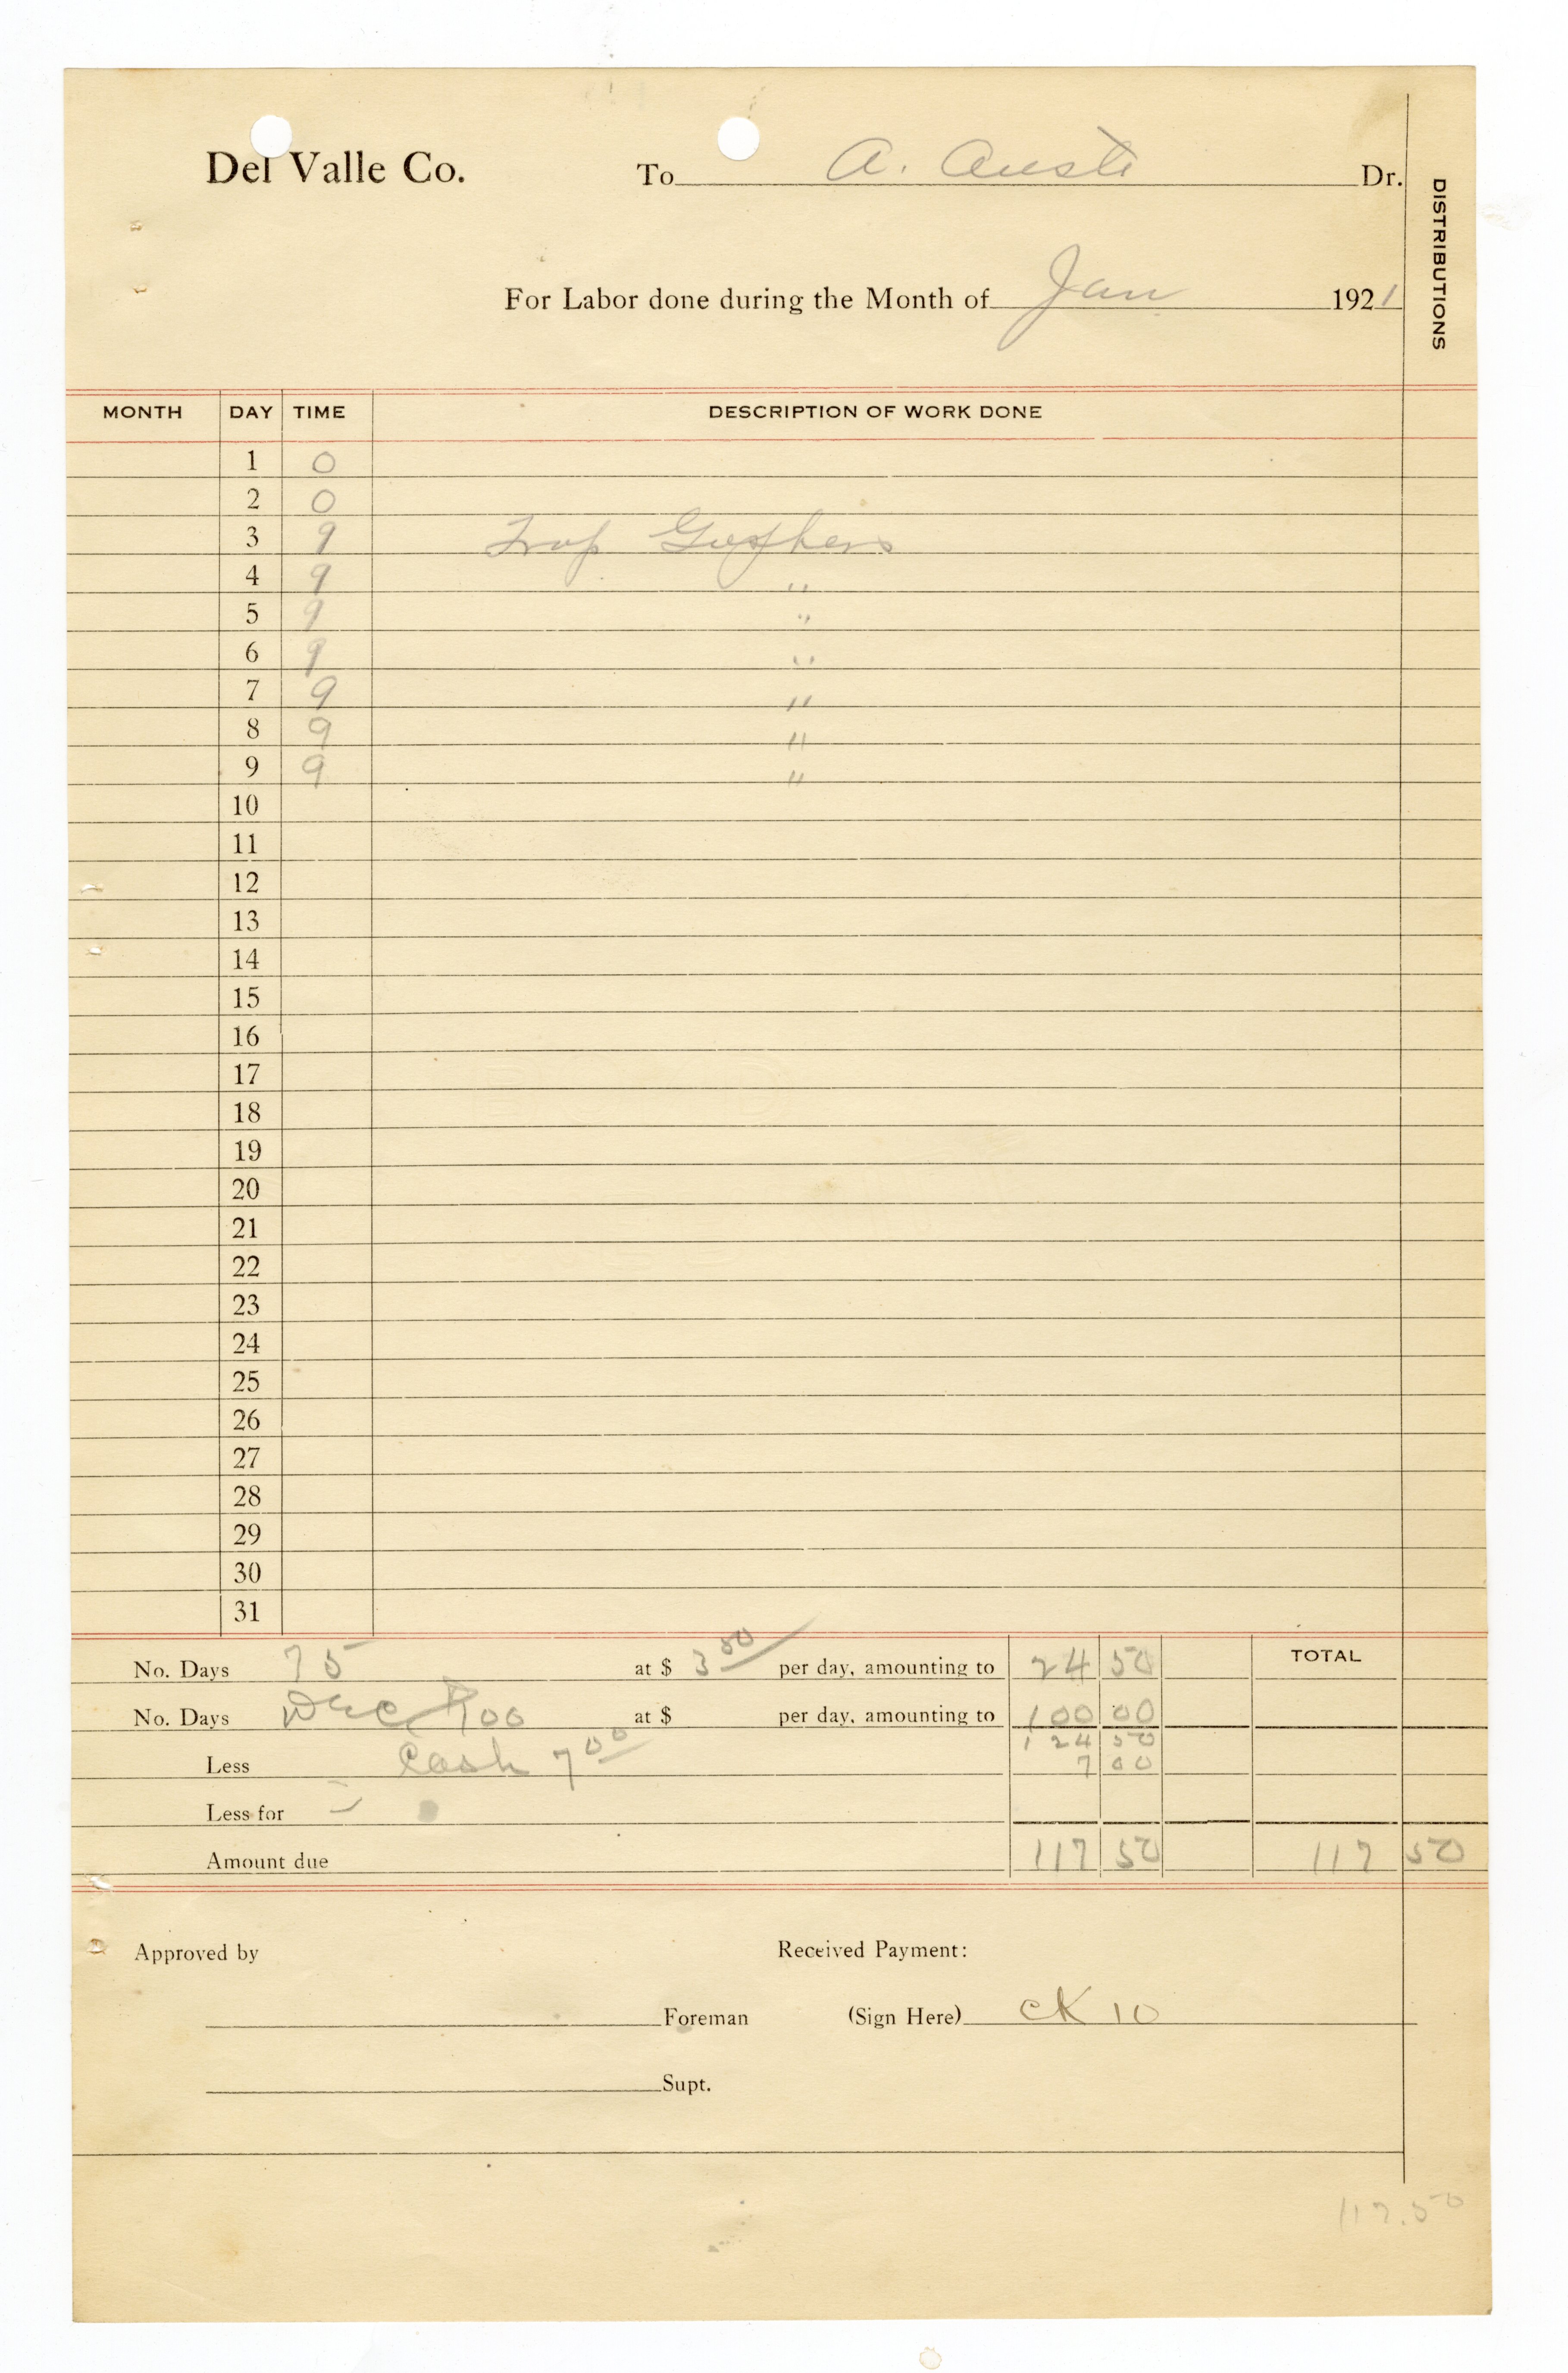 Del Valle Co. To A. Auste Dr.
DISTRIBUTIONS
For Labor done during the Month of Jan 1921
MONTH DAY TIME DESCRIPTION OF WORK DONE
1 0
2 0
3 9 Trap Gophers
4 9 "
5 9 "
6 9 "
7 9 "
8 9 "
9 9 "
10
11
12
13
14
15
16
17
18
19
20
21
22
23
24
25
26
27
28
29
30
31
No. Days 7 at $ 3 50 per day, amounting to 24 50 TOTAL
No. Days Dec 100 at $ per day, amounting to 100 00
124 50
Less Cash 7 00 7 00
Less for
Amount due 117 50 117 50
Approved by Received Payment:
Foreman (Sign Here) CK 10
Supt.
117.50